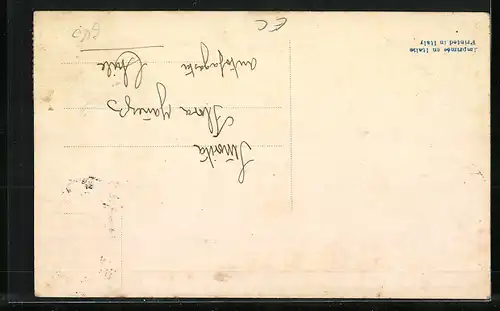 Señorita
Flora Yáñez
Antofagasta
Chile
Imprimée en Italie
Printed in Italy
EC